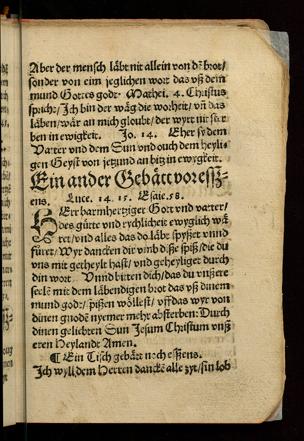 Aber der mensch läbt nit allein von dẽ brot/
sonder von eim jeglichen wort das vß dem
mund Gottes godt. Mathei. 4. Christus
spricht/ Ich bin der wäg die worheit/ vñ das
läben/ wär an mich gloubt/ der wyrt nit stet
ben in ewigkeit. Jo. 14. Eher sy dem
Vatter vnd dem Sun vnd ouch dem heyli-
gen Geyst von jetzund an bitz in ewygkeit.
Ein ander Gebätt vor essz-
ens. Luce. 14. 15. Esaie. 58.
HErr barmhertziger Gott vnd vatter/
des gütte vnd rychlicheit ewyglich wä
ret/ vnd alles das do läbt spyßet vnnd
füret/ Wyr dancken dir vmb diße spiß/ die du
vns mit getheylt hast/ vnd geheyliget durch
din wort. Vnnd bitten dich/ das du vnßere
seelẽ mit dem läbendigen brot das vß dinem
mund godt/ spißen wöllest/ vff das wyr von
dinen gnodẽ nyemer mehr absterben: Durch
dinen geliebten Sun Jesum Christum vnß
eren Heylandt Amen.
¶ Ein Tisch gebätt noch essens.
Ich wyll dem Herren danckẽ alle zyt/ sin lob